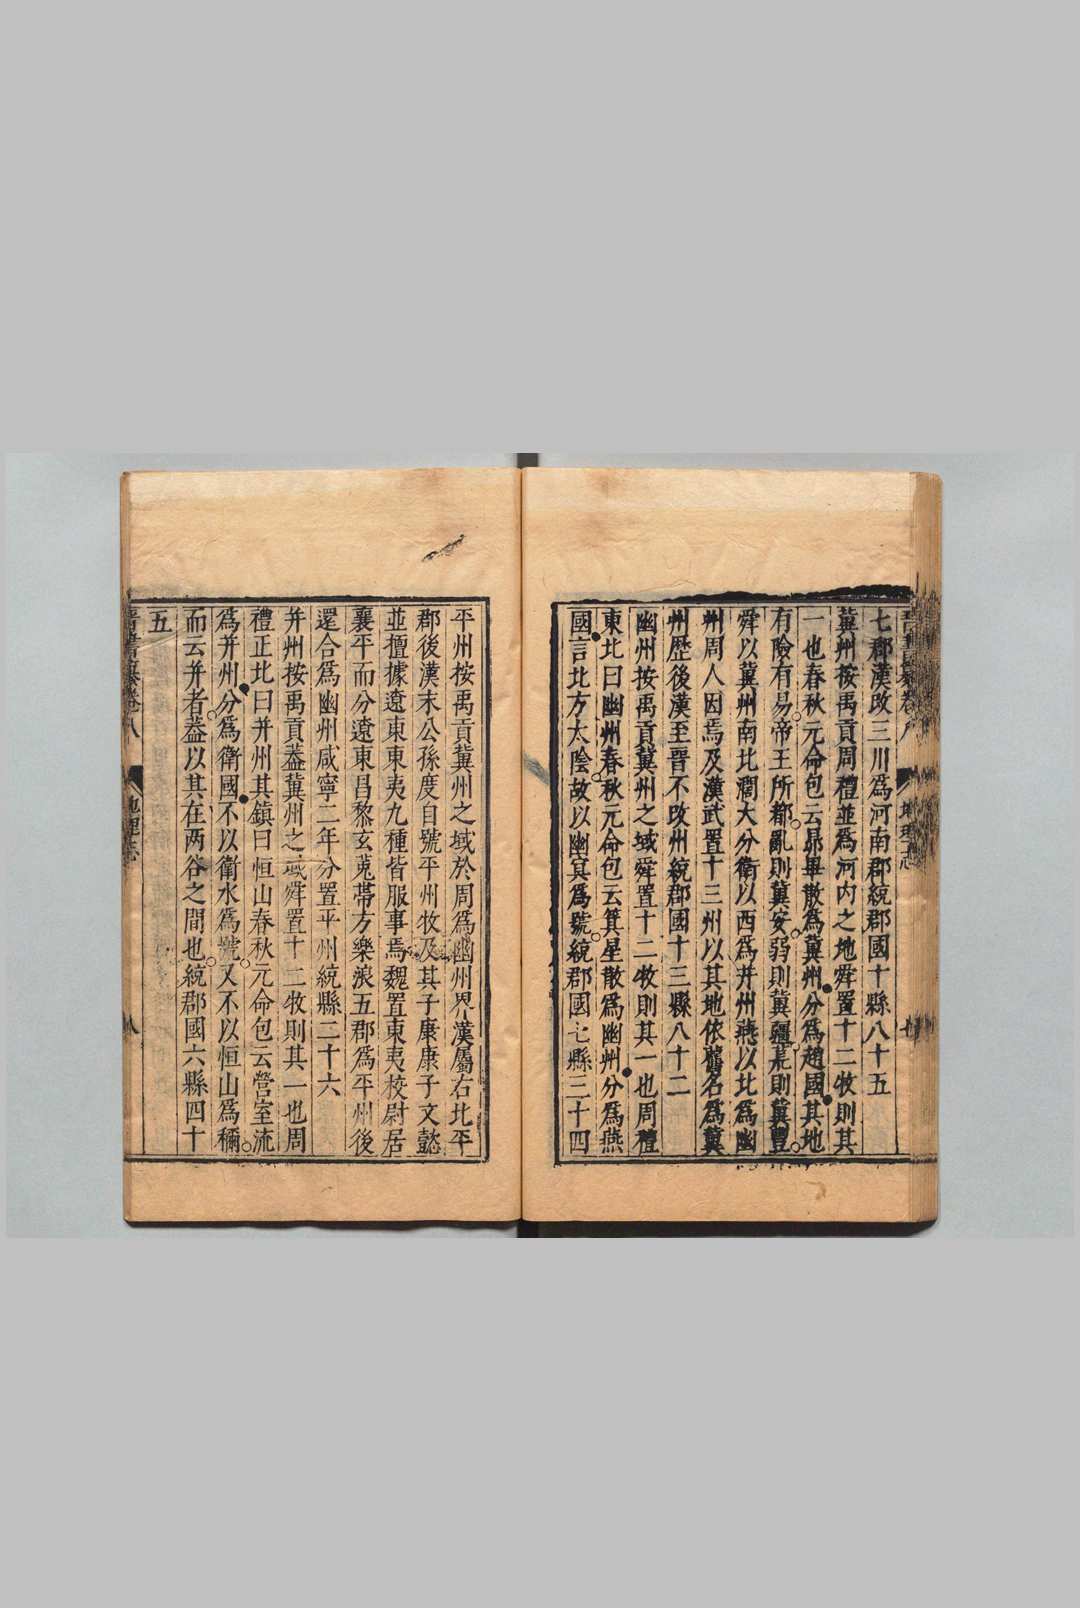 七郡漢改三川爲河南郡統郡國十縣八十五
冀州按禹貢周禮並爲河內之地舜置十二牧則其
一也春秋元命包云昴畢散爲冀州分爲趙國其地
有險有易帝王所都亂則冀安弱則冀疆荒則冀豐
舜以冀州南北濶大分衛以西爲并州燕以北爲幽
州周人因焉及漢武置十三州以其地依舊名爲冀
州歷後漢至晉不改州統郡國十三縣八十二
幽州按禹貢冀州之域舜置十二牧則其一也周禮
東北曰幽州春秋元命包云箕星散爲幽州分爲燕
國言北方太陰故以幽冥爲號統郡國七縣三十四
平州按禹貢冀州之域於周爲幽州界漢屬右北平
郡後漢末公孫度自號平州牧及其子康康子文懿
並擅據遼東東夷九種皆服事焉魏置東夷校尉居
襄平而分遼東昌黎玄菟帶方樂浪五郡爲平州後
還合爲幽州咸寧二年分置平州統縣二十六
并州按禹貢蓋冀州之域舜置十二牧則其一也周
禮正北曰并州其鎮曰恒山春秋元命包云營室流
爲并州分爲衛國不以衛水爲號又不以恒山爲稱
而云并者蓋以其在两谷之間也統郡國六縣四十
五
卷八
地理志
八